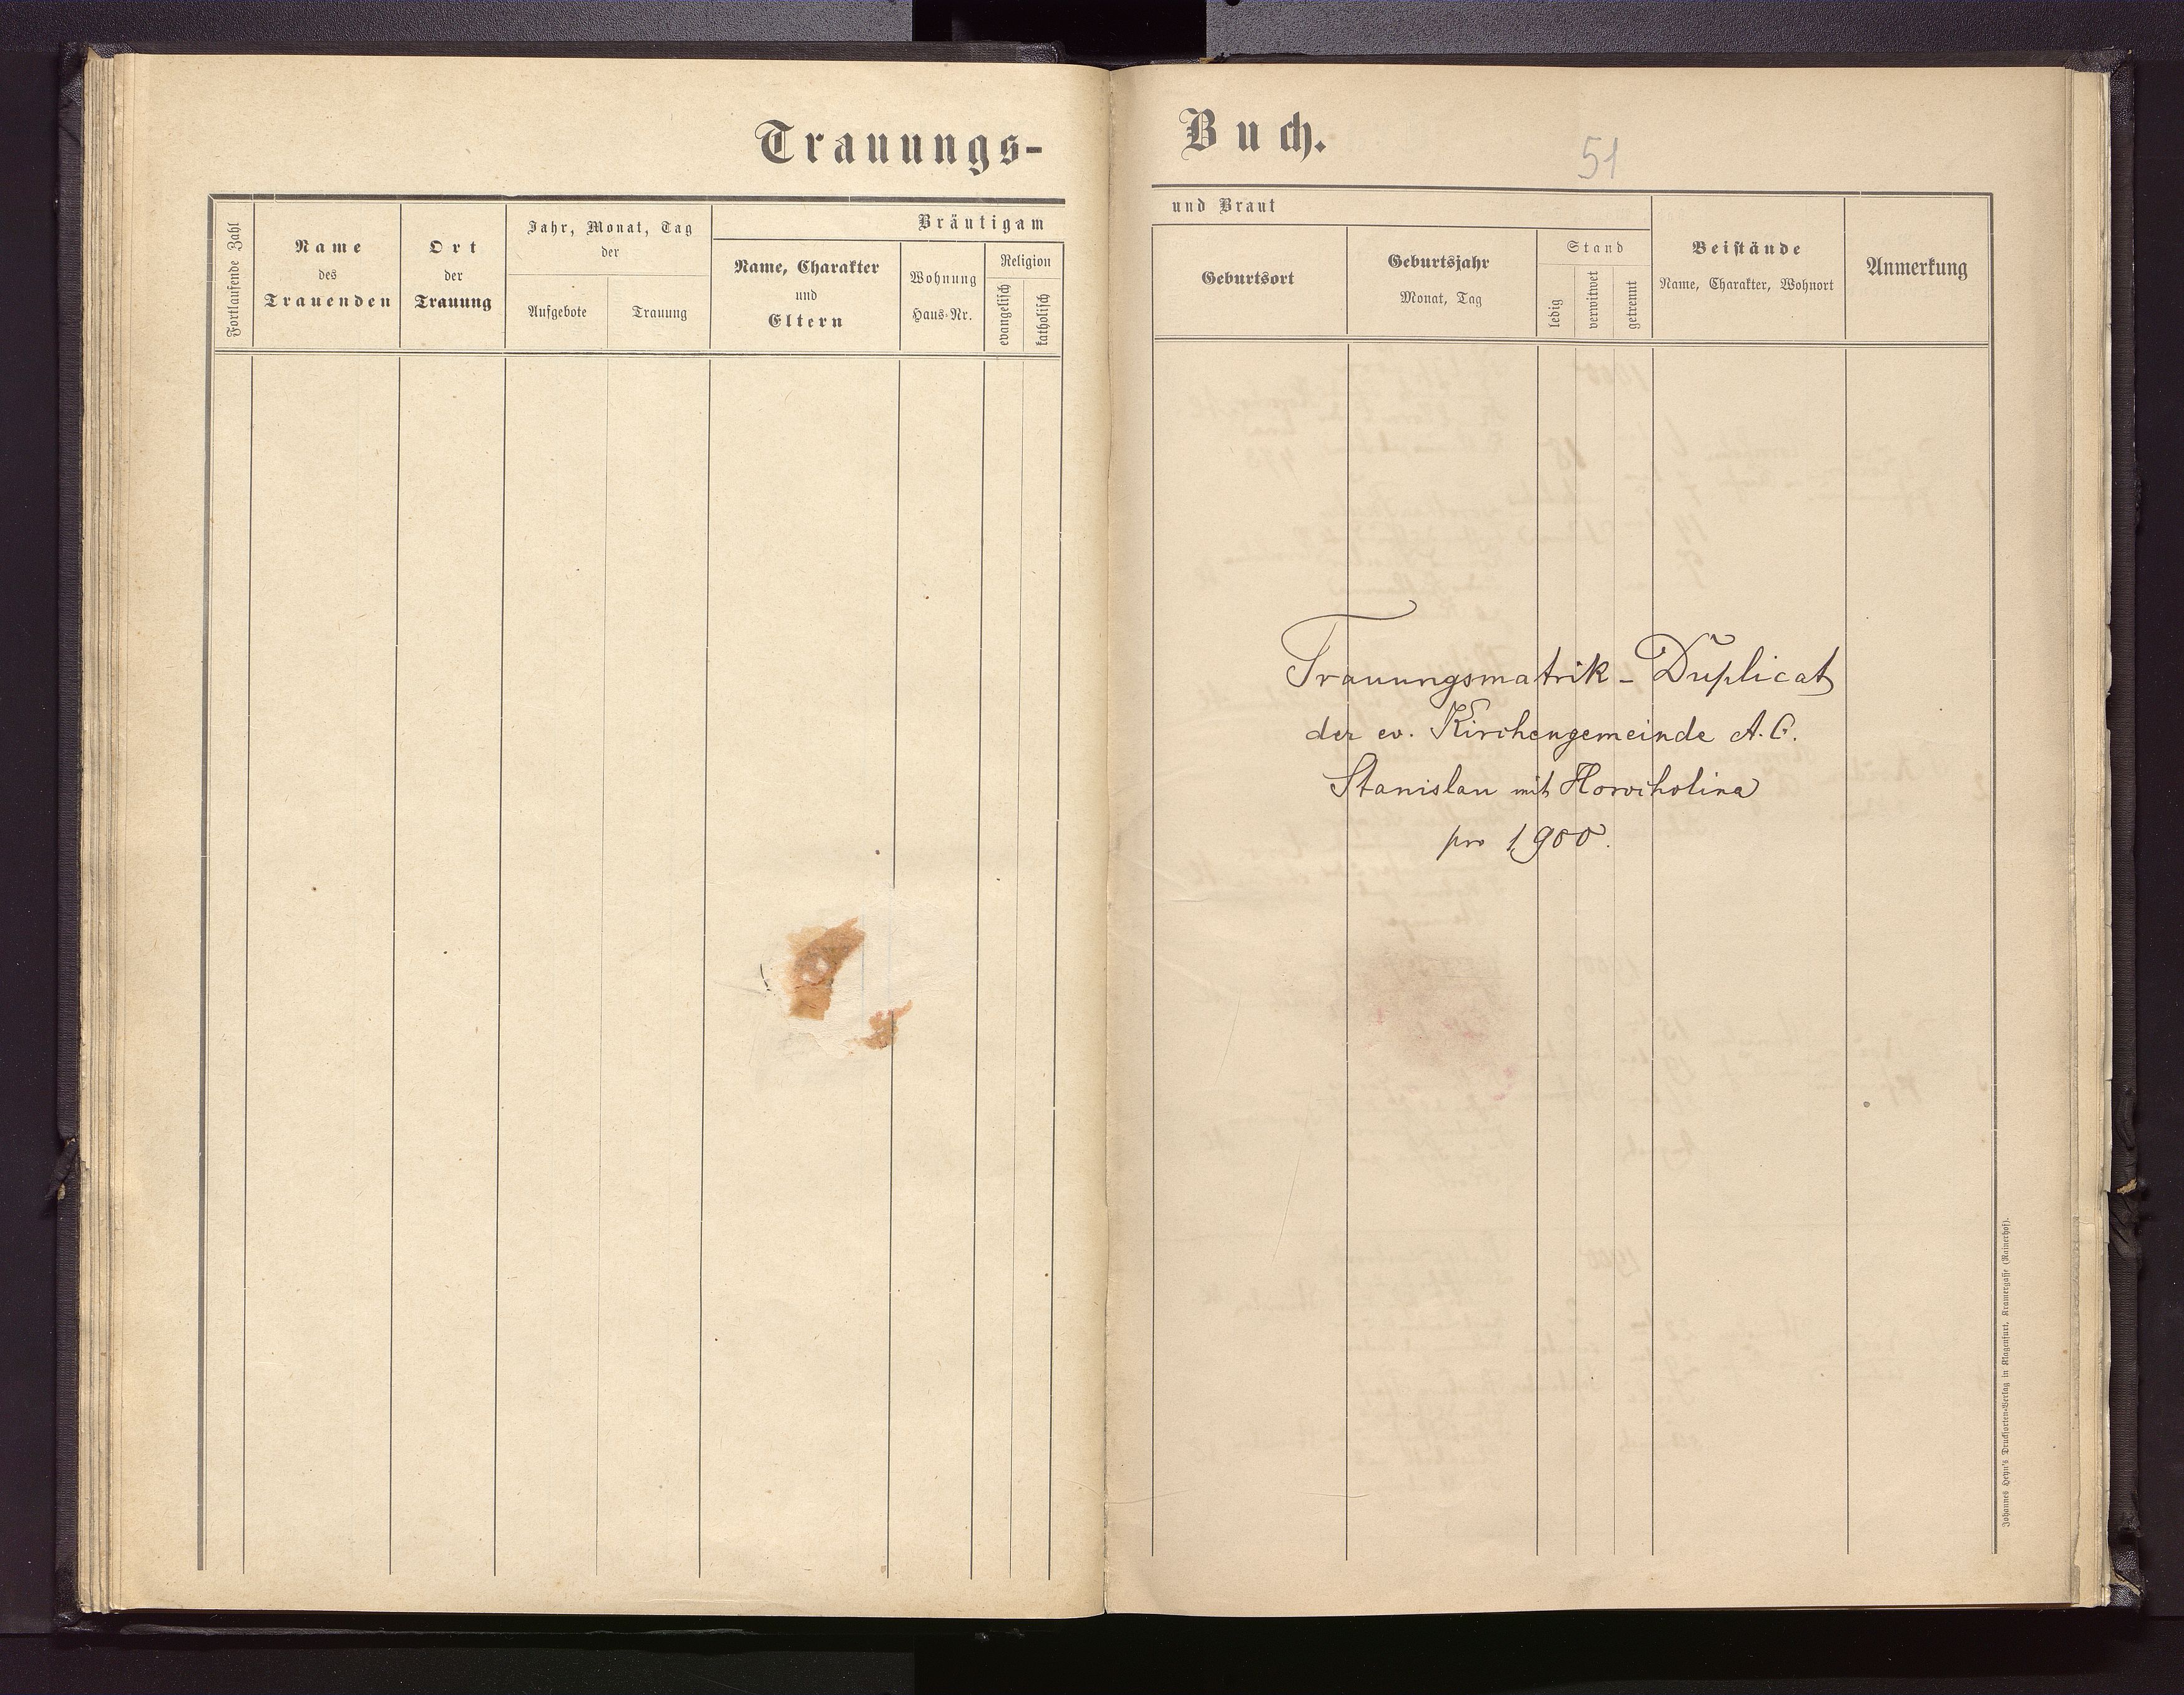 Trauungs-
Fortlaufende Zahl
Name
des
Trauenden
Ort
der
Trauung
Jahr, Monat, Tag
der
Aufgebote
Trauung
Bräutigam
Name, Charakter
und
Eltern
Wohnung
Haus-Nr.
Religion
evangelisch
katholisch
Buch.
51
und Braut
Geburtsort
Geburtsjahr
Monat, Tag
Stand
ledig
verwitwet
getrennt
Beistände
Name, Charakter, Wohnort
Anmerkung
Trauungsmatrik - Duplicat
der ev. Kirchengemeinde A. C.
Stanislau mit Horocholina
pro 1900.
Johannes Heyn's Drucksorten-Verlag in Klagenfurt, Kramergasse (Rainerhof).